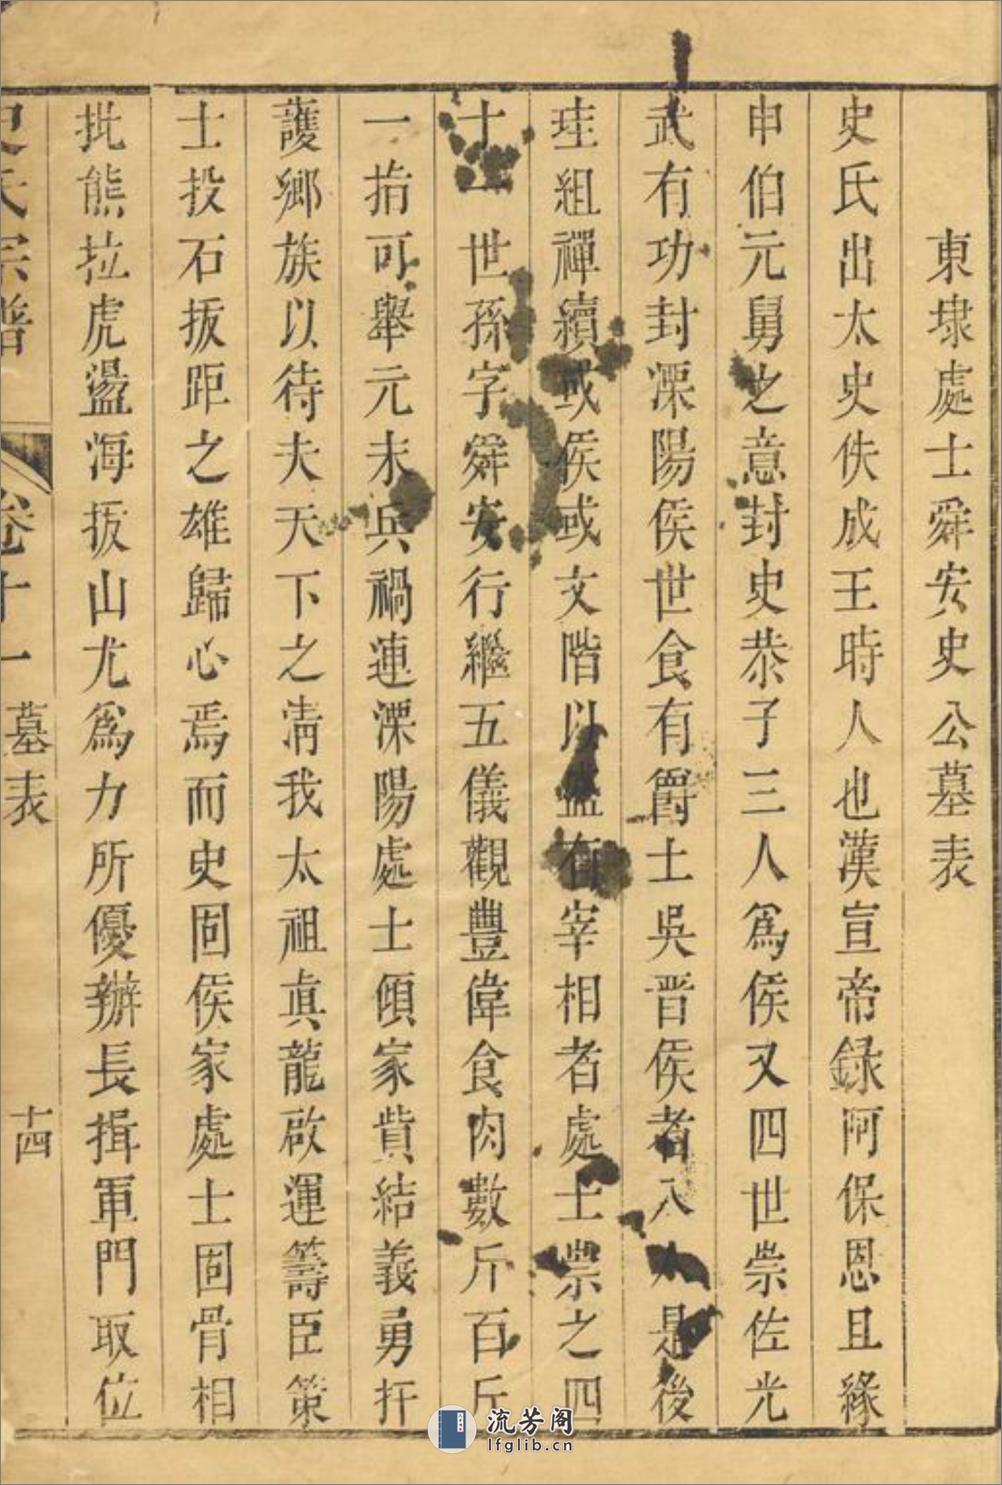 東埭處士舜安史公墓表
史氏出太史佚成王時人也漢宣帝録阿保恩且緣
申伯元舅之意封史恭子三人為侯又四世崇佐光
武有功封溧陽侯世食有爵土吳晋侯者八人是後
珪組禪續或侯或文階以盛有宰相者處士崇之四
十一世孫字舜安行繼五儀觀豐偉食肉數斤百斤
一指可舉元末兵禍連溧陽處士傾家貲結義勇扞
護鄉族以待夫天下之淸我太祖眞龍啟運籌臣策
士投石扳距之雄歸心焉而史固侯家處士固骨相
批熊拉虎盪海扳山尤為力所優辦長揖軍門取位
史氏宗譜
卷十一
墓表
十四
流芳阁
lfglib.cn